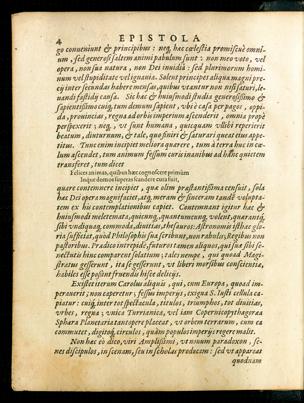 4 EPISTOLA
go conueniunt & principibus : neq, hæc cœlestia promiscuè omni-
um, sed generosi saltem animi pabulum sunt : non meo voto, vel
opera, non sua natura, non Dei inuidiâ : sed plurimorum homi-
num vel stupiditate vel ignauia. Solent principes aliqua magni pre-
cij inter secundas habere mensas, quibus vtantur non nisi saturi, le-
uandi fastidij causa. Sic hæc & huiusmodi studia generosissimo &
sapientissimo cuiq, tum demum sapient, vbi è casa per pagos, oppi-
da, prouincias, regna ad orbis imperium ascenderit, omnia probè
perspexerit ; neq, vt sunt humana, quicquam vspiam repererit
beatum, diuturnum, & tale, quo finiri & saturari queat eius appe-
titus. Tunc enim incipiet meliora quærere, tum à terra huc in cœ-
lum ascendet, tum animum fessum curis inanibus ad hanc quietem
transferet, tum dicet
Felices animas, quibus hæc cognoscere primùm
Inque domos superas scandere cura fuit,
quare contemnere incipiet, quæ olim præstantissima censuit, sola
hæc Dei opera magnifaciet, atq, meram & sinceram tandem volupta-
tem ex his contemplationibus capiet. Contemnant igitur hæc &
huiusmodi meletemata, quicunq, quantumcunq, volent, quærantq,
sibi vndiquaq, commoda, diuitias, thesauros : Astronomis isthæc glo-
ria sufficiat, quod Philosophis sua scribunt, non rabulis, Regibus non
pastoribus. Prædico intrepidè, futuros tamen aliquos, qui sua sibi se-
nectutis hinc comparent solatium ; tales nempe, qui quoad Magi-
stratus gesserunt, ita se gesserunt, vt liberi morsibus conscientiæ,
habiles esse possint fruendis hisce delicijs.
Existet iterum Carolus aliquis, qui, cum Europæ, quoad im-
perauerit, non caperetur ; fessus imperijs, exigua S. Iusti cellula ca-
piatur : cuiq, inter tot spectacula, titulos, triumphos, tot diuitias,
vrbes, regna ; vnica Turriana, vel iam Copernicopythagoræa
Sphæra Planetaria tantopere placeat, vt orbem terrarum, cum ea
commutet, digitoq, circulos, quàm populos imperijs regere malit.
Non hæc eò dico, viri Amplissimi, vt nouum paradoxon, se-
nes discipulos, in scenam, seu in scholas producam : sed vt appareat
quodnam